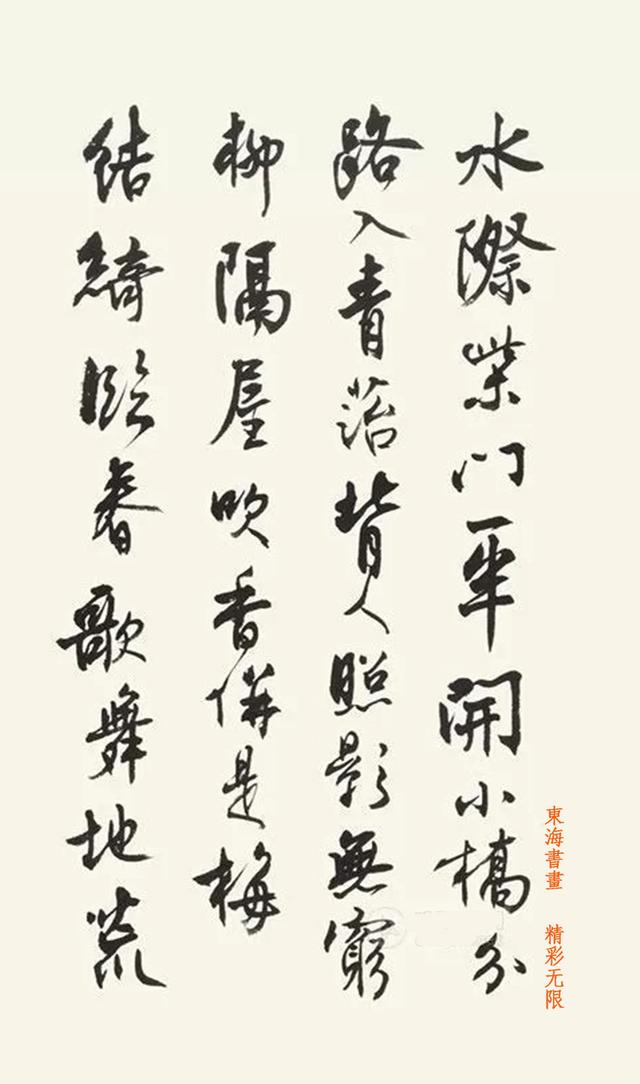 水際柴門一半開小橋分
路入青落背人照影無窮
柳隔屋吹香併是梅
結綺臨春歌舞地荒
東海書畫 精彩无限